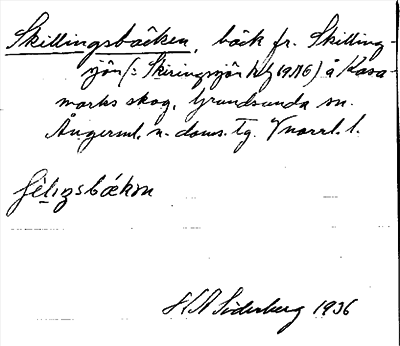 Skillingsbäcken, bäck fr. Skilling-
sjön (: Skiringssjön kbl 19776) å Kasa-
marks skog, Grundsunda sn.
Ångerml. n. doms. Tg. Vnorrl. l.
hon
H A Söderberg 1936